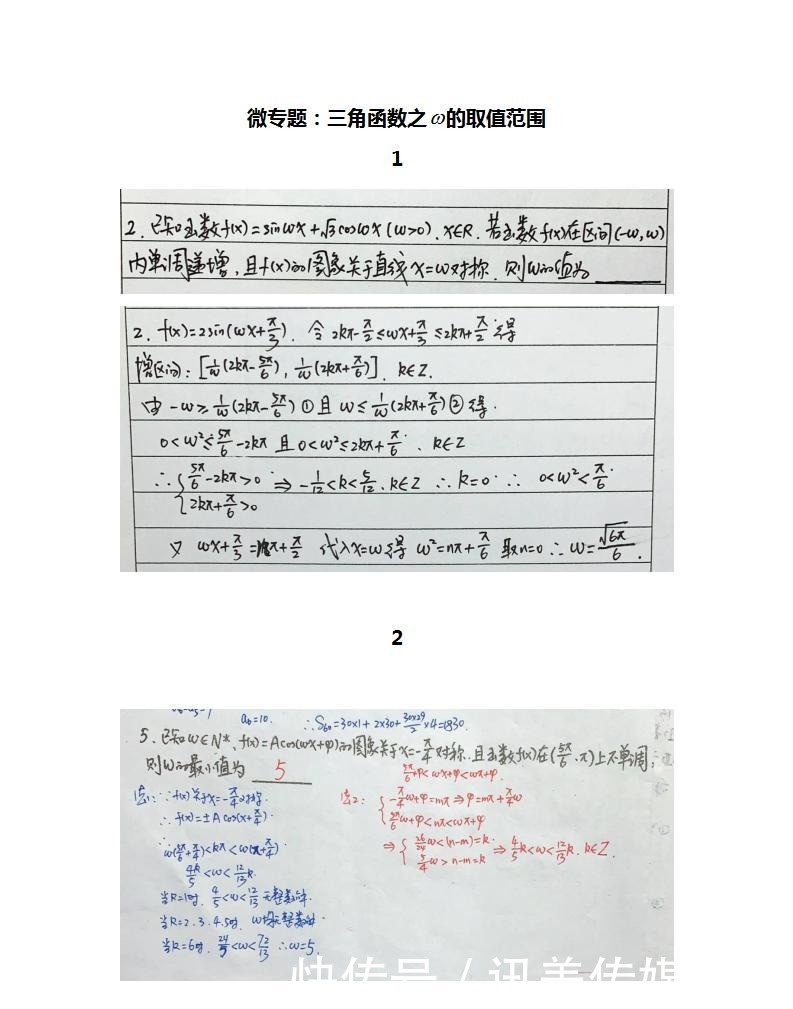 微专题：三角函数之ω的取值范围
1
2. 已知函数f(x)=sinωx+√3cosωx(ω>0). x∈R. 若函数f(x)在区间(-ω,ω)
内单调递增, 且f(x)的图象关于直线x=ω对称. 则ω的值为______
2. f(x)=2sin(ωx+π/3). 令 2kπ-π/2≤ωx+π/3≤2kπ+π/2 得
增区间: [1/ω(2kπ-5π/6), 1/ω(2kπ+π/6)]. k∈Z.
由 -ω≥1/ω(2kπ-5π/6)① 且 ω≤1/ω(2kπ+π/6)② 得.
0<ω²≤5π/6-2kπ 且 0<ω²≤2kπ+π/6. k∈Z
∴ {5π/6-2kπ>0 ⇒ -1/12<k<5/12. k∈Z ∴k=0 ∴ 0<ω²<π/6.
2kπ+π/6>0
又 ωx+π/3=nπ+π/2 代入x=ω得 ω²=nπ+π/6 取n=0 ∴ω=√6π/6.
2
a₆=10. ∴S₆₀=30×1+2×30+30×29/2×4=1830.
5. 已知ω∈N*, f(x)=Acos(ωx+φ)的图象关于x=-π/4对称. 且函数f(x)在(5π/6, π)上不单调,
则ω的最小值为 5
法1: ∵f(x)关于x=-π/4对称.
∴f(x)=±Acos(x+π/4).
∴ω(5π/6+π/4)<kπ<ω(π+π/4)
4k/5<ω<12/13k.
当k=1时. 4/5<ω<12/13 无整数解.
当k=2.3.4.5时. ω均无整数解.
当k=6时. 24/5<ω<72/13 ∴ω=5.
5π/6ω+φ<ωx+φ<ωπ+φ.
法2: {-π/4ω+φ=mπ⇒φ=mπ+π/4ω
5π/6ω+φ<nπ<ωπ+φ
⇒{26/24ω<(n-m)=k. ⇒ 4/5k<ω<12/13k. k∈Z.
5/4ω>n-m=k
快传号/讯美传媒